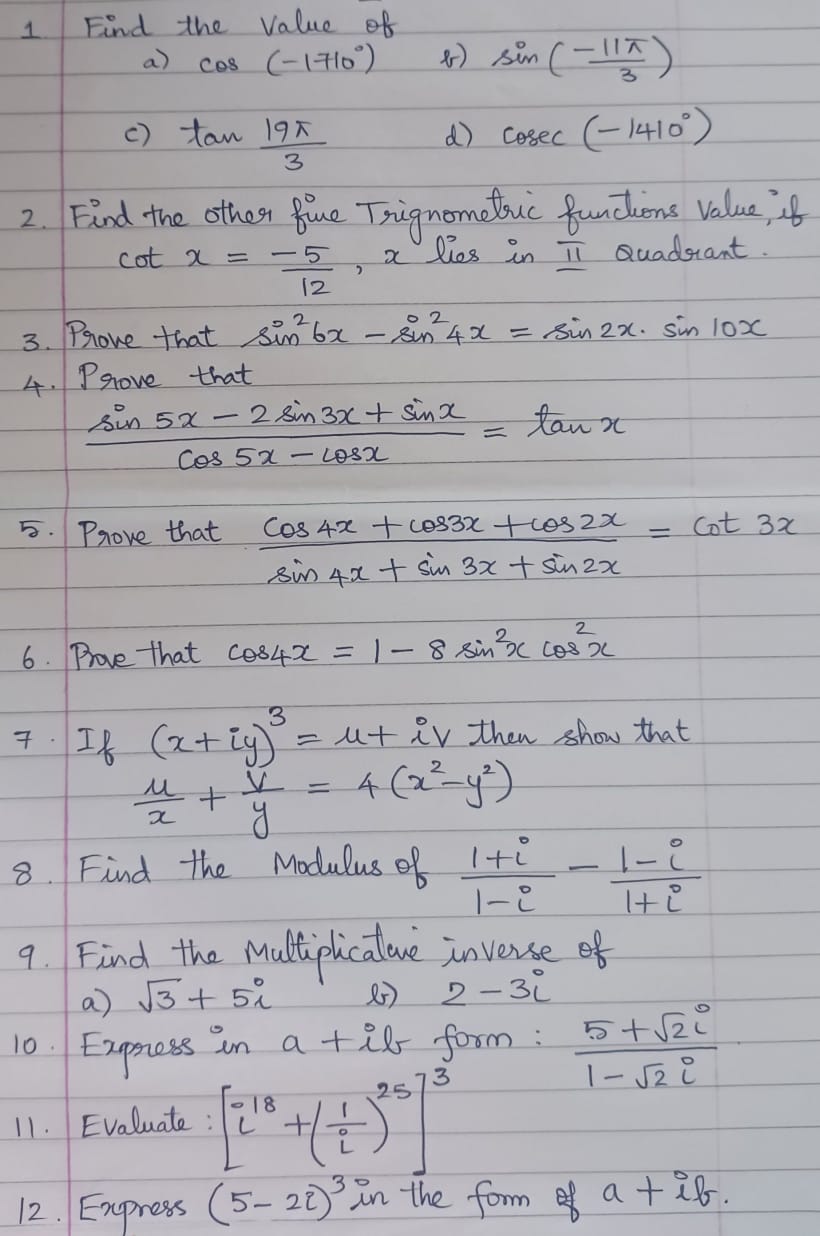 1 Find the Value of
a) cos (-1710°) b) sin (-11π/3)
c) tan 19π/3 d) cosec (-1410°)
2. Find the other five Trignometric functions Value, if
cot x = -5/12, x lies in II Quadrant.
3. Prove that sin²6x - sin²4x = sin 2x. sin 10x
4. Prove that
(sin 5x - 2 sin 3x + sin x)/(cos 5x - cosx) = tan x
5. Prove that (cos 4x + cos3x + cos 2x)/(sin 4x + sin 3x + sin 2x) = cot 3x
6. Prove that cos4x = 1 - 8 sin²x cos²x
7. If (x + iy)³ = u + iv then show that
u/x + v/y = 4 (x² - y²)
8. Find the Modulus of (1+i)/(1-i) - (1-i)/(1+i)
9. Find the Multiplicative inverse of
a) √3 + 5i b) 2 - 3i
10. Express in a + ib form : (5 + √2 i)/(1 - √2 i)
11. Evaluate : [i¹⁸ + (1/i)²⁵]³
12. Express (5 - 2i)³ in the form of a + ib.